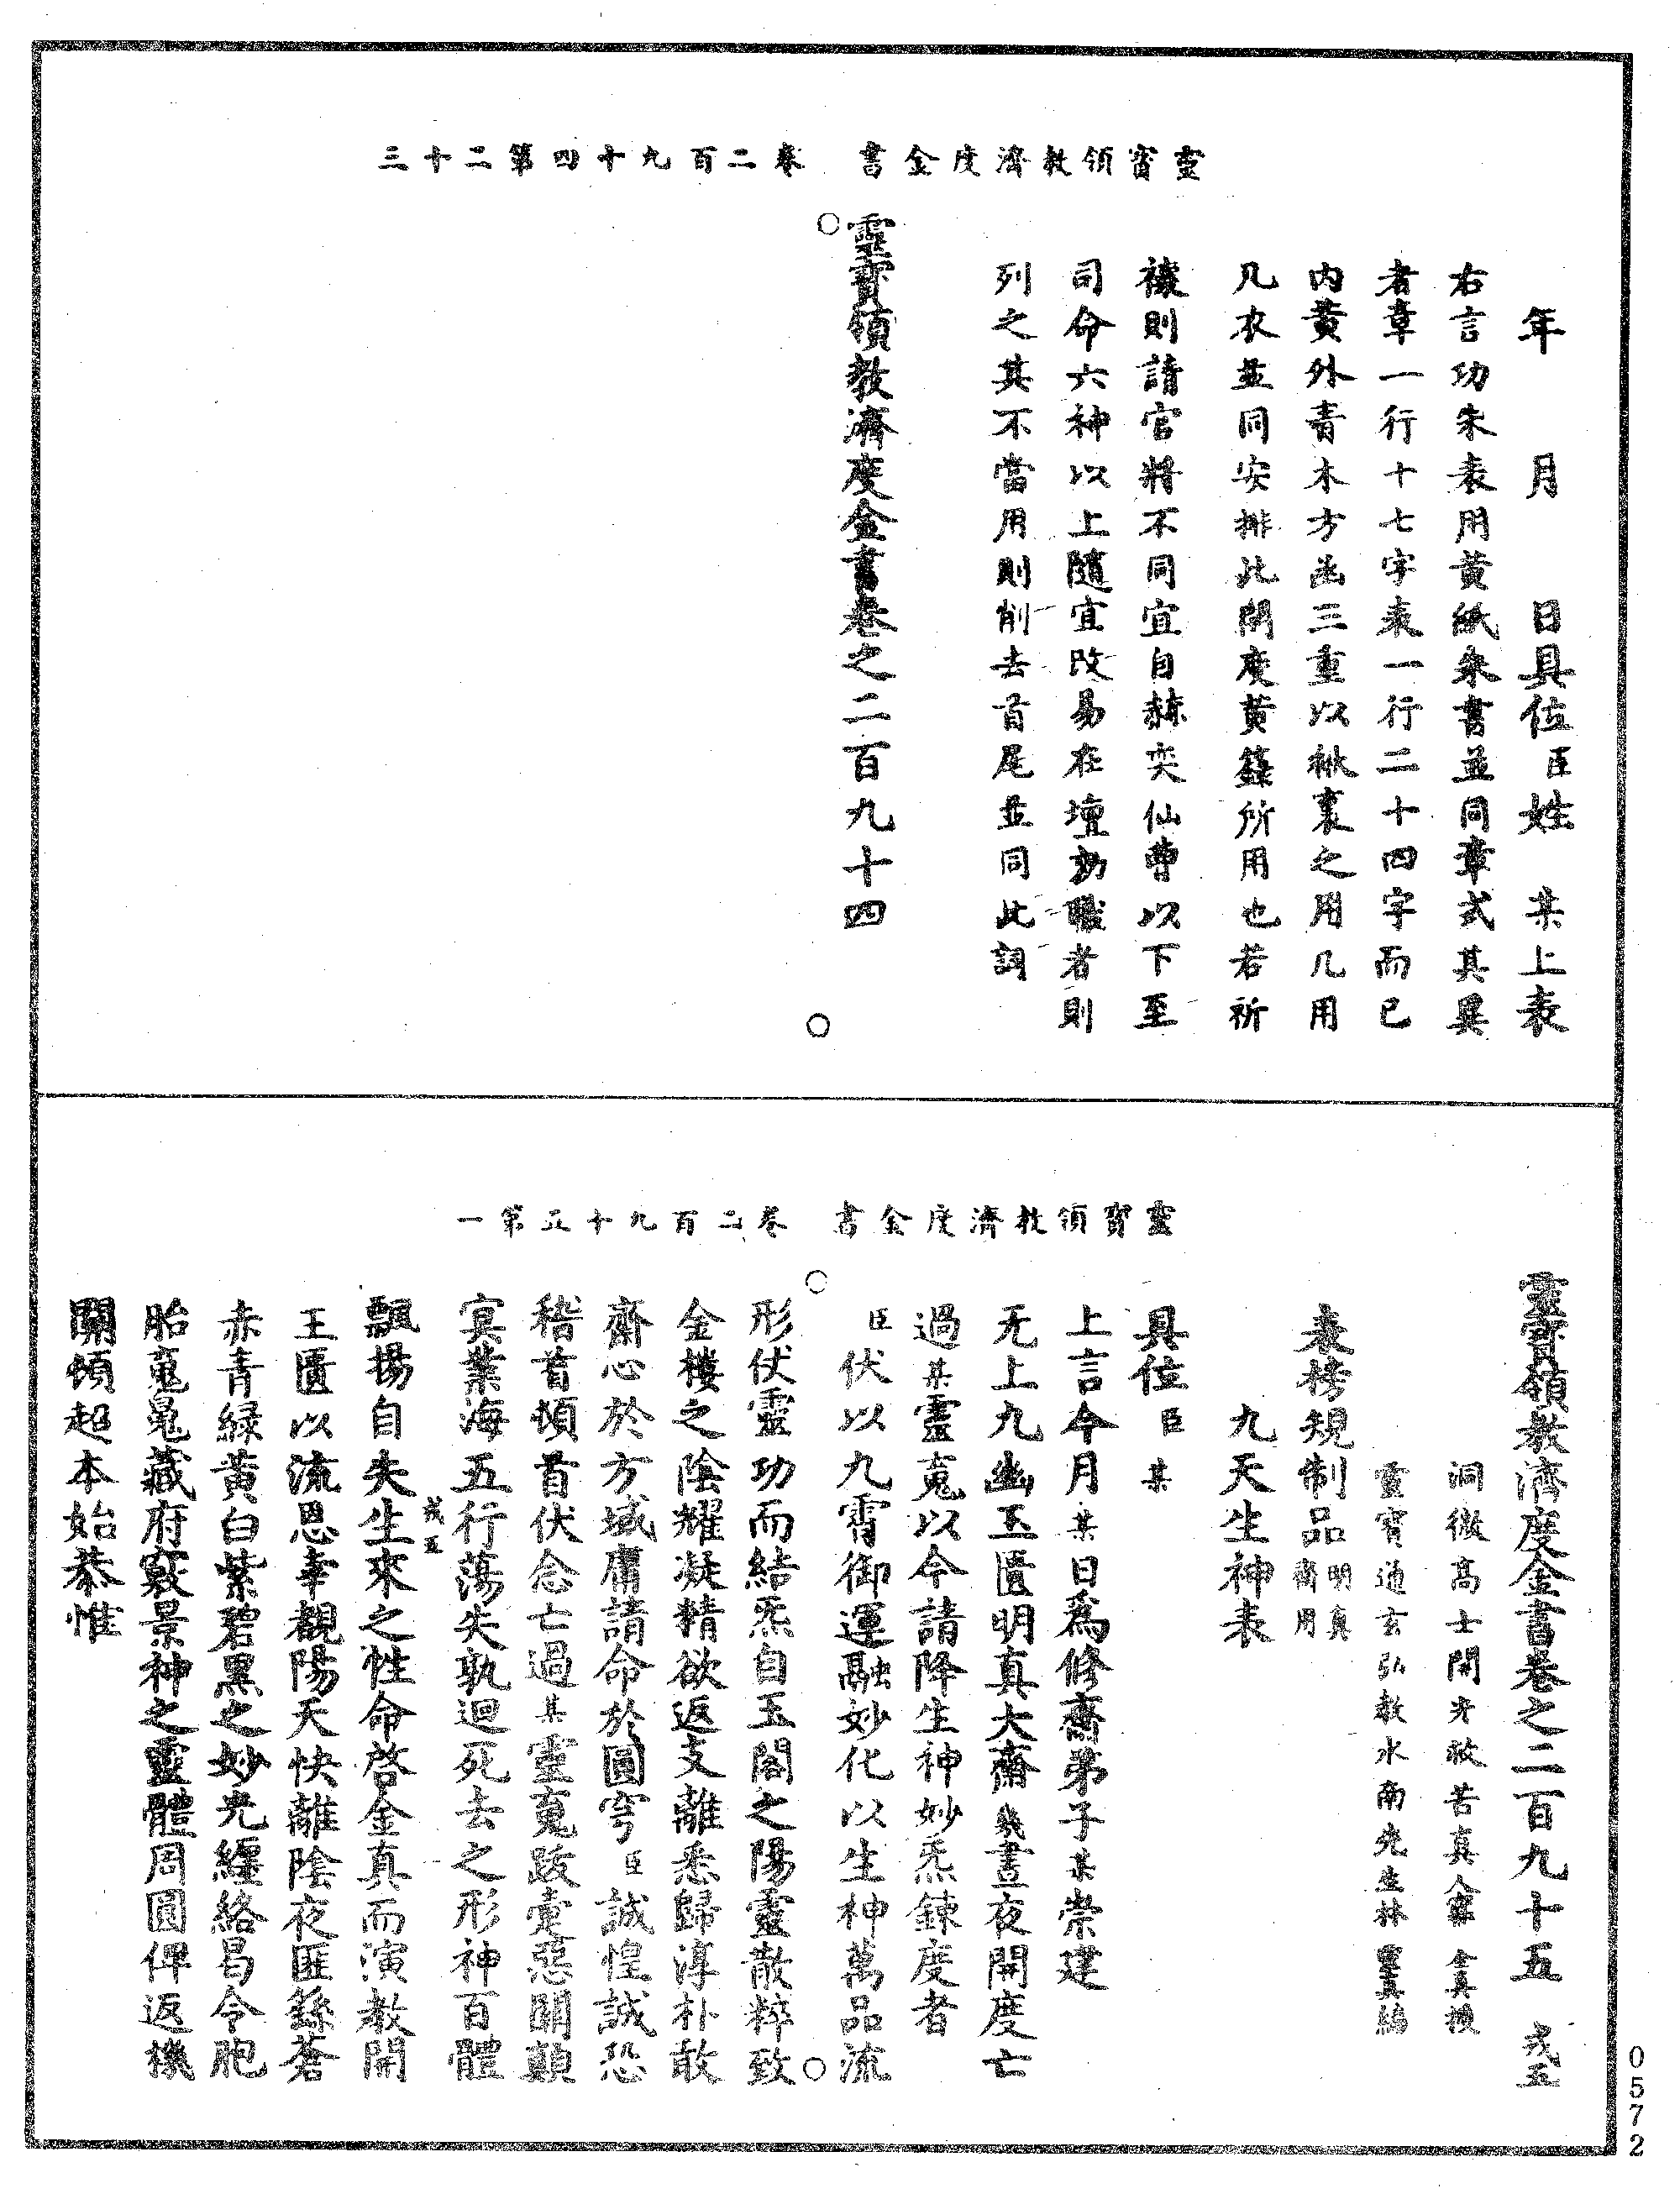 靈寳領教濟度金書　卷二百九十四第二十三
年　月　日具位臣姓　某上表
右言功朱表用黄紙朱書並同章式其異
者章一行十七字表一行二十四字而已
内黄外青木方函三重以𥿄裹之用几用
凡衣並同安排此開度黄籙所用也若祈
禳則請官將不同宜自赫奕仙曹以下至
司命六神以上隨宜改易在壇効職者則
列之其不當用則削去首尾並同此詞
靈寳領教濟度金書卷之二百九十四
靈寳領教濟度金書　卷二百九十五第一
靈寳領教濟度金書卷之二百九十五　戎五
洞微高士開光救苦真人甯　全真授
靈寳通玄弘教水南先生林　靈真編
表榜規制品明真齋用
九天生神表
具位臣某
上言今月某日爲修齋弟子某崇建
无上九幽玉匱明真大齋幾晝夜開度亡
過某靈䰟以今請降生神妙炁鍊度者
臣伏以九霄御運融妙化以生神萬品流
形仗靈功而結炁自玉閣之陽靈散粹致
金樓之陰耀凝精欲返支離悉歸淳朴敢
齋心於方域庸請命於圓穹臣誠惶誠恐
稽首頓首伏念亡過某靈䰟跋疐惡關顛
㝠業海五行蕩失孰迴死去之形神百體
飄揚自失生來之性命啓金真而演教開
戎五
玉匱以流恩幸覩陽天快離陰夜匪繇蒼
赤青緑黄白紫碧黑之妙光纒絡曷令胞
胎䰟䰠藏府竅景神之靈體周圓俾返機
關頓超本始恭惟
0572